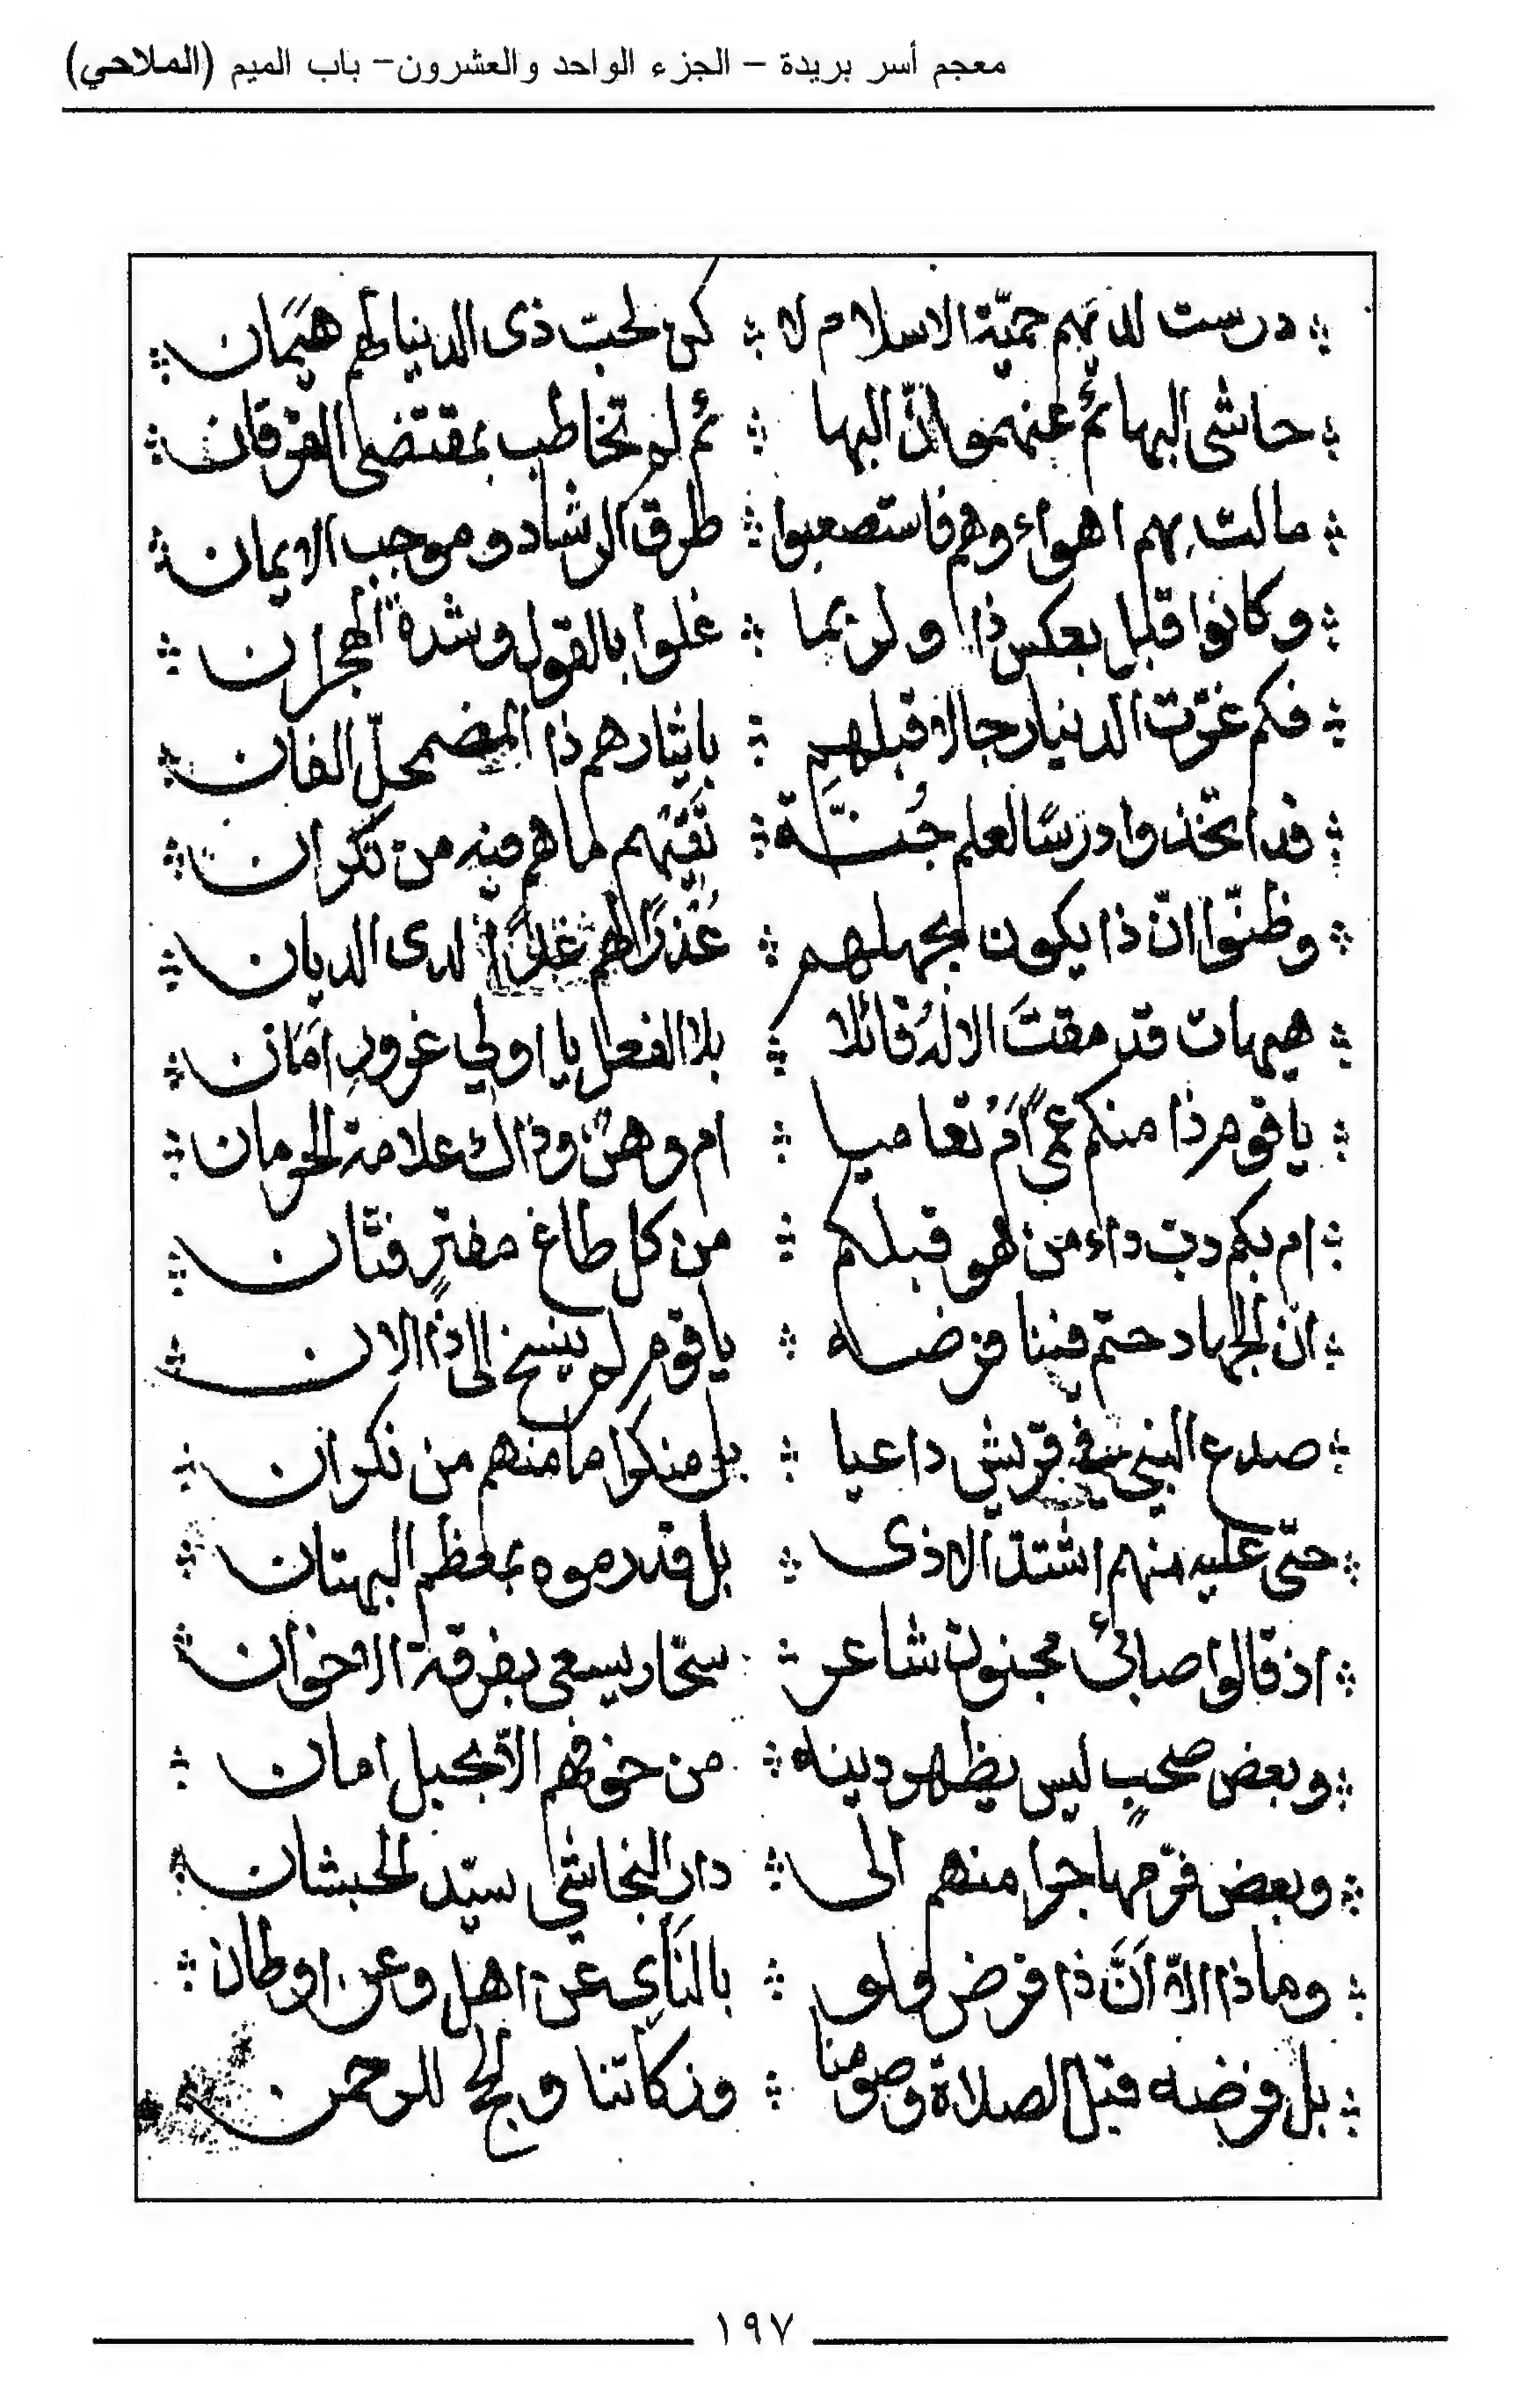 معجم أسر بريدة – الجزء الواحد والعشرون– باب الميم (الملاحي)
درست لديهم حميّة الاسلام لا كن لحبّ ذى الدنيا لهم هيَمَان
حاشى البهائم عنهمو اذّ البها ئم لم تخاطب بمقتضى الفرقان
مالت بهم اهواءوهم فاستصعبوا طرق الرشاد وموجب الايمان
وكانوا قبل بعكس ذا ولربما غلوا بالقول وشدة الهجران
فكم غرّت الدنيا رجالا قبلهم بايثارهم ذا المضمحلّ الفان
قد اتخذوا درسًا لعلم جُنَّة تَقّيَهم لما هم فيه من نكران
وظنّوا انّ ذا يكون لجهلهم عُذرًا لهم غدًا لدى الديان
هيهات قد مقتَ الالهُ قائلا بلا الفعل يا اولي غرورِ امَان
يا قوم ذا منكم عمىً اَم تعاميا ام وهنٌ وذاك علامة الحرمان
ام بكم دبّ داء من هو قبلكم من كل طاغ مفترٍ فتّان
انّ الجهاد حتم فينا فرضه يا قوم لم ينسخ الى ذا الان
صدع النبي في قريش داعيا بل منكرا ما منهم من نكران
حتّى عليه منهم اشتدّ الاذى بل قد رموه بمعظم البهتان
اذ قالوا صابئ مجنون شاعر سحّار يسعى بفرقة الاخوان
وبعض صحبٍ ليس يظهر دينه من خوفهم الاّ بحبل امان
وبعض فرّ مهاجرا منهم الى دار النجاشي سيّد الحبشان
وماذا الاّ اَنَّ ذا فرض ولو بالنَاَي عن اهل وعن اوطان
بل فرضه قبل الصلاة وصومنا وزكاتنا والحج للرحمن
١٩٧